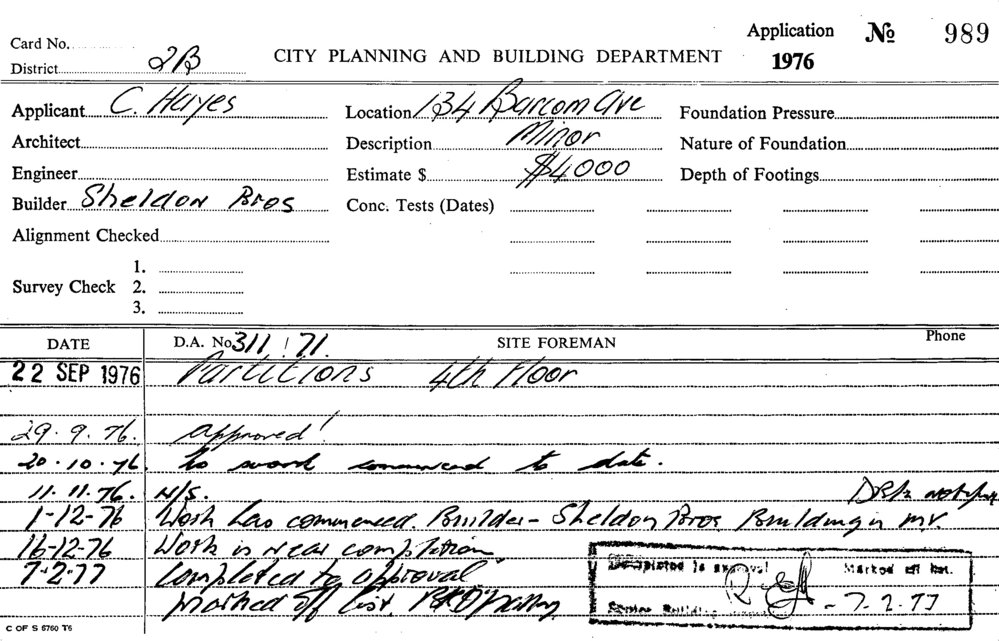 Card No.
District 2B
CITY PLANNING AND BUILDING DEPARTMENT
Application
1976
№ 989
Applicant C. Hayes
Location 134 Barcom Ave
Foundation Pressure
Architect
Description Minor
Nature of Foundation
Engineer
Estimate $ $4000
Depth of Footings
Builder Sheldon Bros
Conc. Tests (Dates)
Alignment Checked
Survey Check
1.
2.
3.
DATE
D.A. No. 311/71.
SITE FOREMAN
Phone
22 SEP 1976 Partitions 4th Floor
29.9.76. approved!
20.10.76. No work commenced to date.
11.11.76. N/S.
1-12-76 Work has commenced. Builder - Sheldon Bros Building
16-12-76 Work is near completion
7-2-77 Completed to approval
marked off list.
Completed to approval
Marked off list.
Senior Building
-7.2.77
C OF S 6760 T6